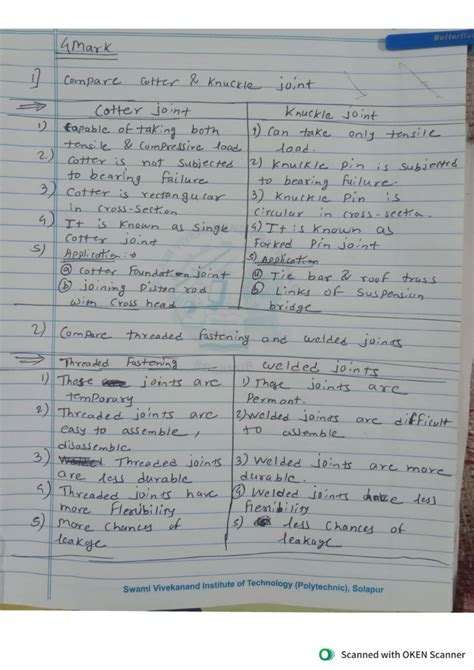 Butterfl
4Mark
1] Compare Cotter & Knuckle joint
Cotter joint
Knuckle joint
1) Capable of taking both
tensile & compressive load
1) Can take only tensile
load.
2) Cotter is not subjected
to bearing failure
2) Knuckle Pin is subjected
to bearing failure.
3) Cotter is rectangular
in cross-section
3) Knuckle Pin is
circular in cross-section.
4) It is known as single
cotter joint
4) It is known as
Forked Pin joint
5) Application :-
5) Application
(a) Cotter Foundation joint
(a) Tie bar & roof truss
(b) joining Piston rod
with cross head
(b) Links of suspension
bridge
2) Compare threaded fastening and welded joints
Threaded Fastening
welded joints
1) These joints are
temporary
1) These joints are
Perment.
2) Threaded joints are
easy to assemble,
disassemble
2) Welded joints are difficult
to assemble
3) Threaded joints
are less durable
3) Welded joints are more
durable.
4) Threaded joints have
more Flexibility
4) Welded joints have less
Flexibility
5) More Chances of
leakage
5) less Chances of
leakage
Swami Vivekanand Institute of Technology (Polytechnic), Solapur
Scanned with OKEN Scanner